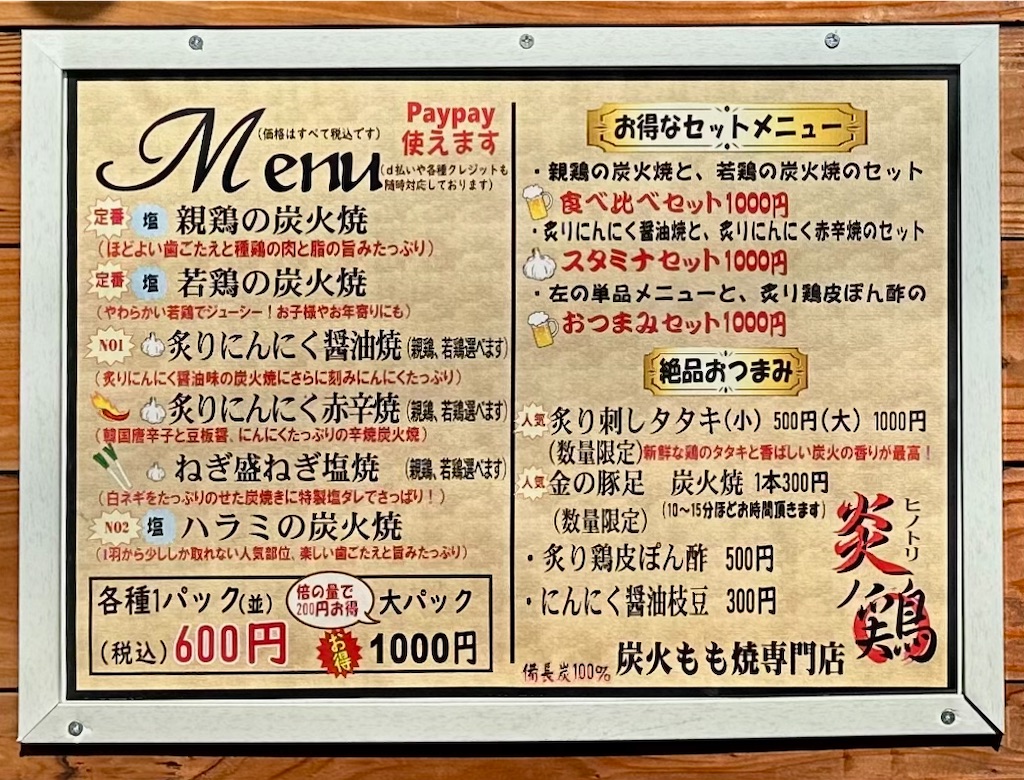 Menu
(価格はすべて税込です)
Paypay
使えます
(d払いや各種クレジットも
随時対応しております)
定番 塩 親鶏の炭火焼
(ほどよい歯ごたえと種鶏の肉と脂の旨みたっぷり)
定番 塩 若鶏の炭火焼
(やわらかい若鶏でジューシー!お子様やお年寄りにも)
NO1 炙りにんにく醤油焼(親鶏、若鶏選べます)
(炙りにんにく醤油味の炭火焼にさらに刻みにんにくたっぷり)
炙りにんにく赤辛焼(親鶏、若鶏選べます)
(韓国唐辛子と豆板醤、にんにくたっぷりの辛焼炭火焼)
ねぎ盛ねぎ塩焼 (親鶏、若鶏選べます)
(白ネギをたっぷりのせた炭焼きに特製塩ダレでさっぱり!)
NO2 塩 ハラミの炭火焼
(1羽から少ししか取れない人気部位、楽しい歯ごたえと旨みたっぷり)
各種1パック(並)
(税込)600円
倍の量で
200円お得
大パック
お得 1000円
お得なセットメニュー
・親鶏の炭火焼と、若鶏の炭火焼のセット
食べ比べセット1000円
・炙りにんにく醤油焼と、炙りにんにく赤辛焼のセット
スタミナセット1000円
・左の単品メニューと、炙り鶏皮ぽん酢の
おつまみセット1000円
絶品おつまみ
人気 炙り刺しタタキ(小) 500円(大) 1000円
(数量限定)新鮮な鶏のタタキと香ばしい炭火の香りが最高!
人気 金の豚足 炭火焼 1本300円
(数量限定) (10〜15分ほどお時間頂きます)
・炙り鶏皮ぽん酢 500円
・にんにく醤油枝豆 300円
備長炭100% 炭火もも焼専門店
炎ノ鶏
ヒノトリ